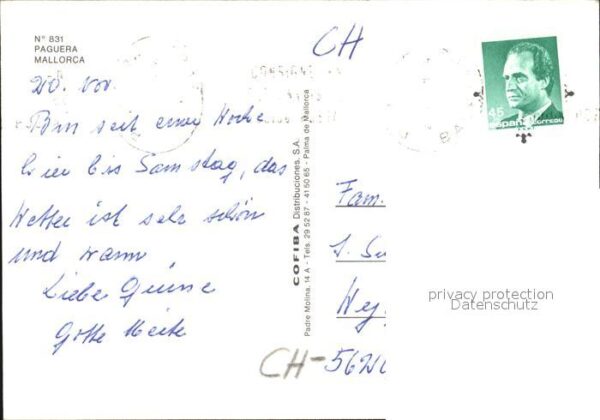 Nº 831
PAGUERA
MALLORCA
CH
20. Nov.
Bin seit einer Woche
hier bis Samstag, das
Wetter ist sehr schön
und warm
Liebe Grüsse
Gotte
45
España correos
COFIBA Distribuciones, S.A.
Padre Molina, 14 A - Tels. 29 52 87 - 41 50 65 - Palma de Mallorca
Fam.
CH-5620
privacy protection
Datenschutz